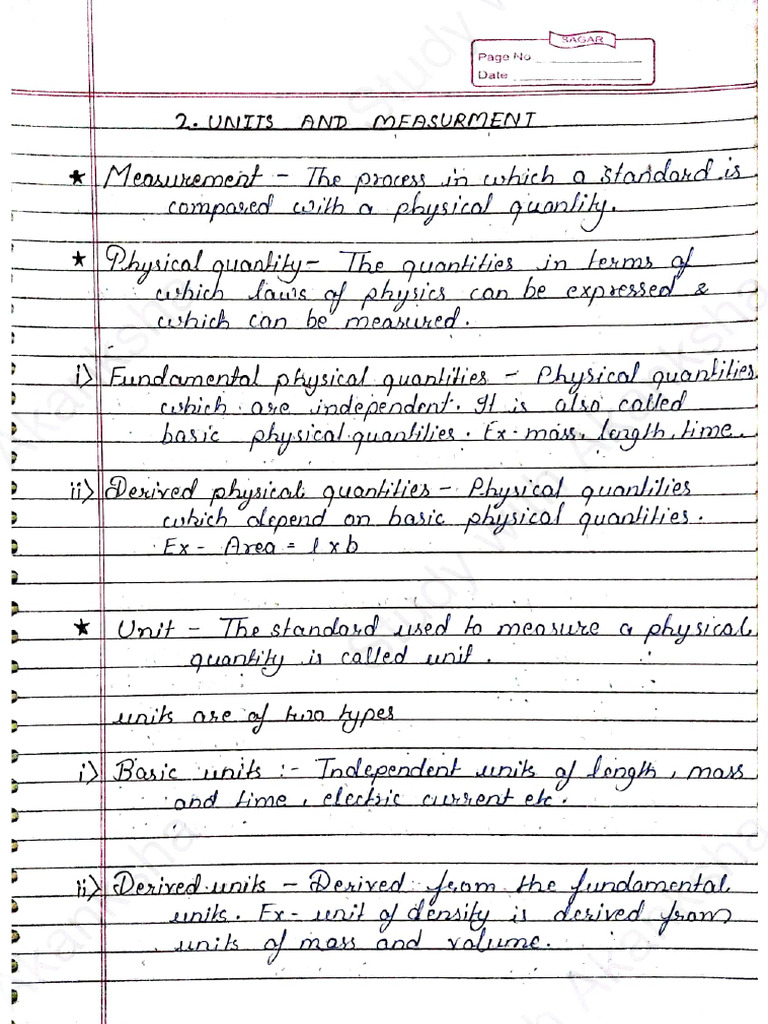 SAGAR
Page No
Date
2. UNITS AND MEASURMENT
★ Measurement - The process in which a standard is
compared with a physical quantity.
★ Physical quantity - The quantities in terms of
which laws of physics can be expressed &
which can be measured.
i) Fundamental physical quantities - Physical quantities
which are independent. It is also called
basic physical quantities. Ex- mass, length, time.
ii) Derived physical quantities - Physical quantities
which depend on basic physical quantities.
Ex - Area = l x b
★ Unit - The standard used to measure a physical
quantity is called unit.
units are of two types
i) Basic units :- Independent units of length, mass
and time, electric current etc.
ii) Derived units - Derived from the fundamental
units. Ex- unit of density is derived from
units of mass and volume.
Study with Akanksha